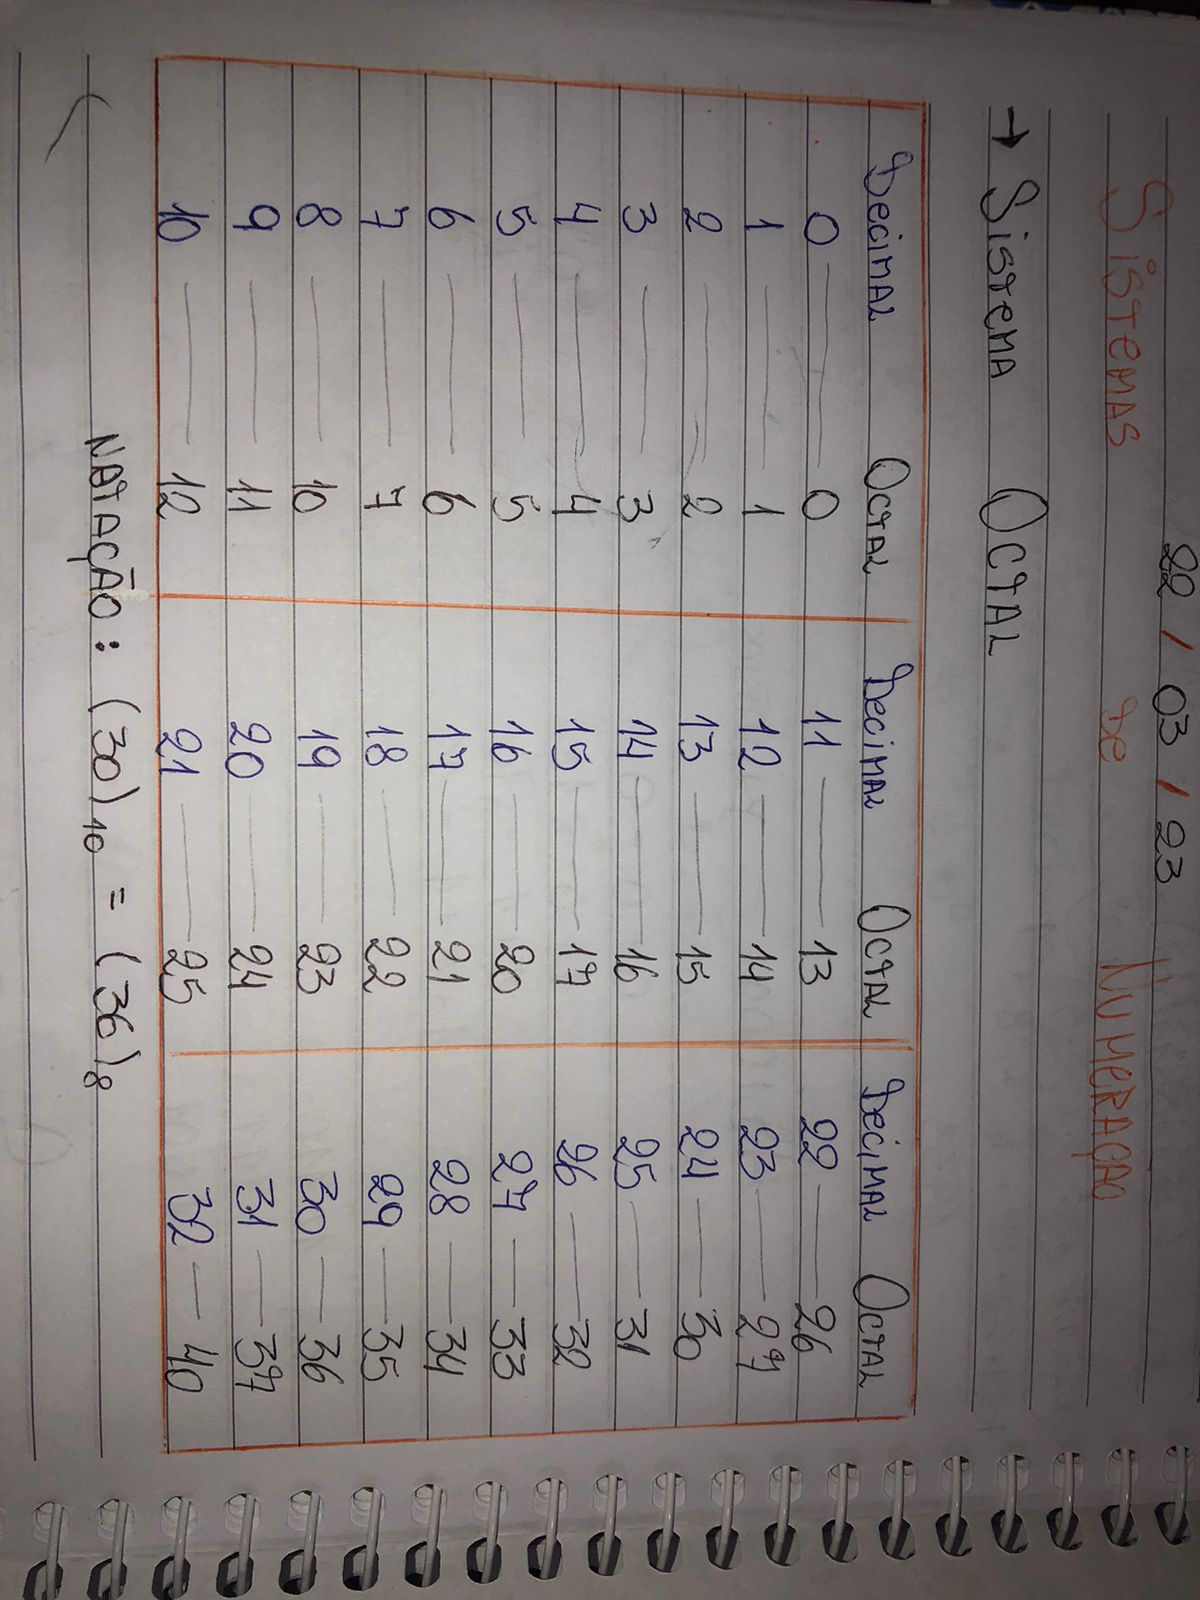 22 / 03 / 23
Sistemas de Numeração
→ Sistema Octal
Decimal Octal Decimal Octal Decimal Octal
0 — 0 11 — 13 22 — 26
1 — 1 12 — 14 23 — 27
2 — 2 13 — 15 24 — 30
3 — 3 14 — 16 25 — 31
4 — 4 15 — 17 26 — 32
5 — 5 16 — 20 27 — 33
6 — 6 17 — 21 28 — 34
7 — 7 18 — 22 29 — 35
8 — 10 19 — 23 30 — 36
9 — 11 20 — 24 31 — 37
10 — 12 21 — 25 32 — 40
Natação: (30)₁₀ = (36)₈